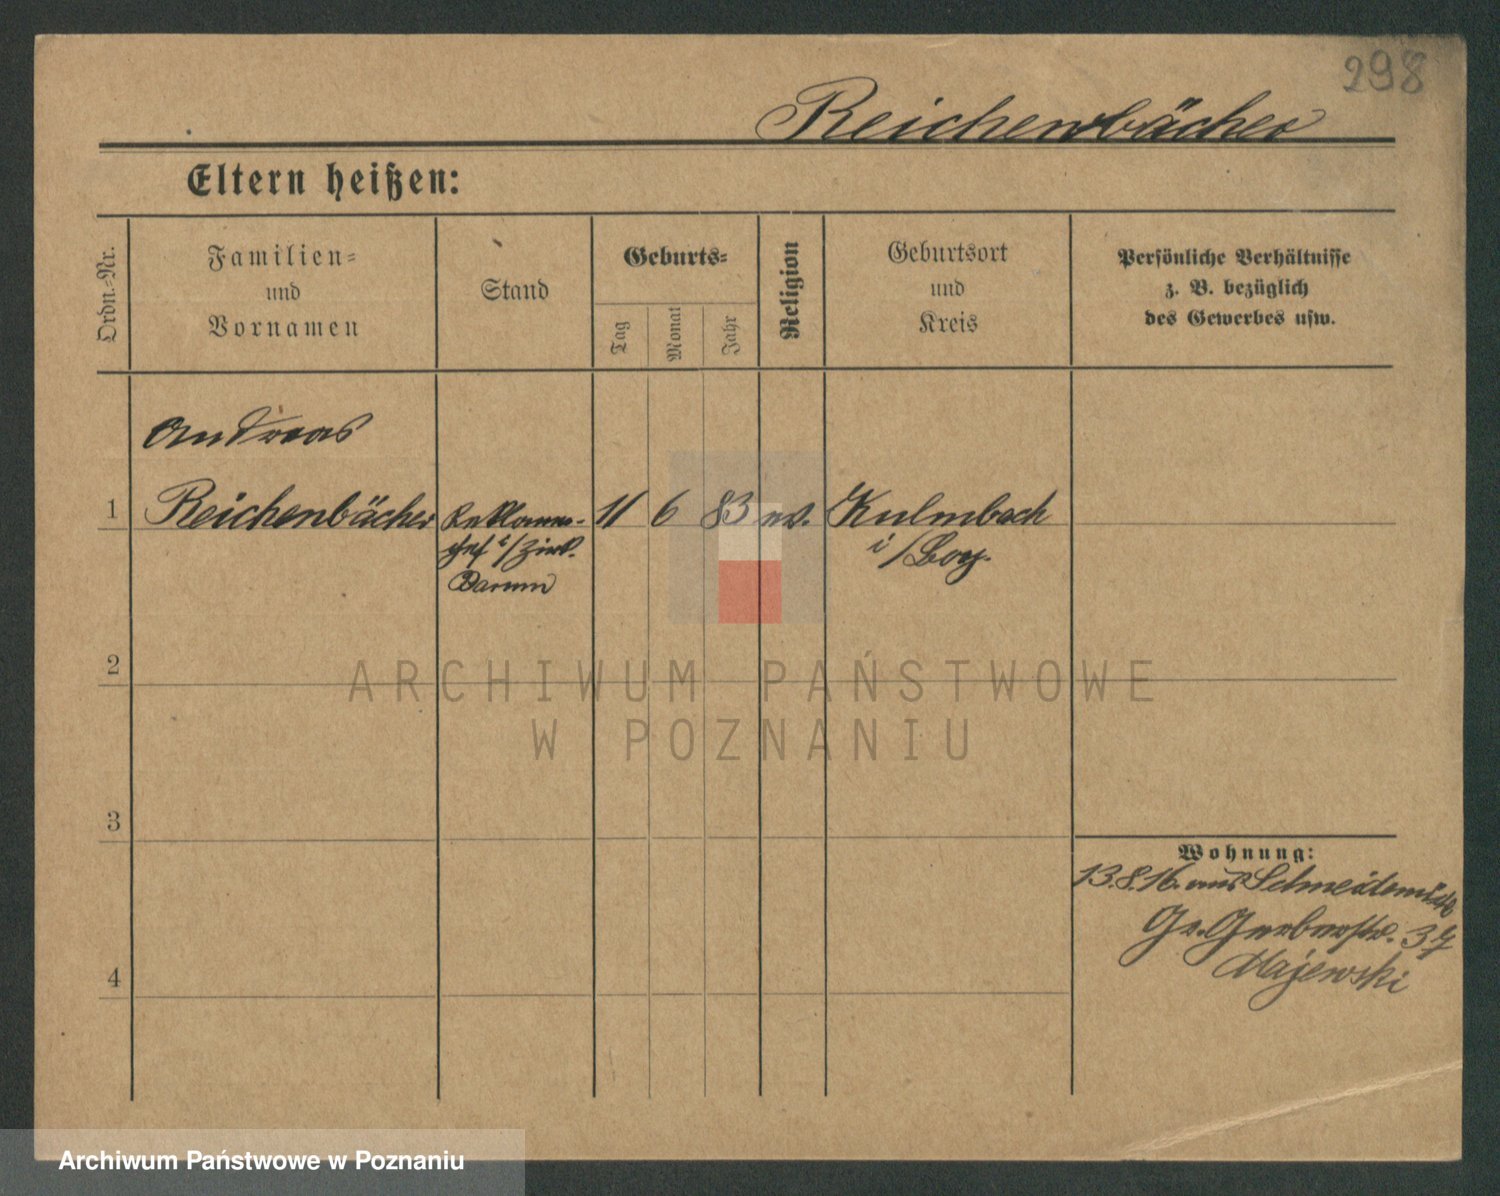 298
Reichenbächer
Eltern heißen:
Ordn.-Nr.
Familien-
und
Vornamen
Stand
Geburts-
Tag
Monat
Jahr
Religion
Geburtsort
und
Kreis
Persönliche Verhältnisse
z. B. bezüglich
des Gewerbes usw.
Andreas
1 Reichenbächer Reklame- 11 6 83 ev. Kulmbach
chef i/Zirk. i/Bay.
2
ARCHIWUM PAŃSTWOWE
W POZNANIU
3
Wohnung:
13.8.16. aus Schneidemühl
Gr. Gerberstr. 37
Majewski
4
Archiwum Państwowe w Poznaniu